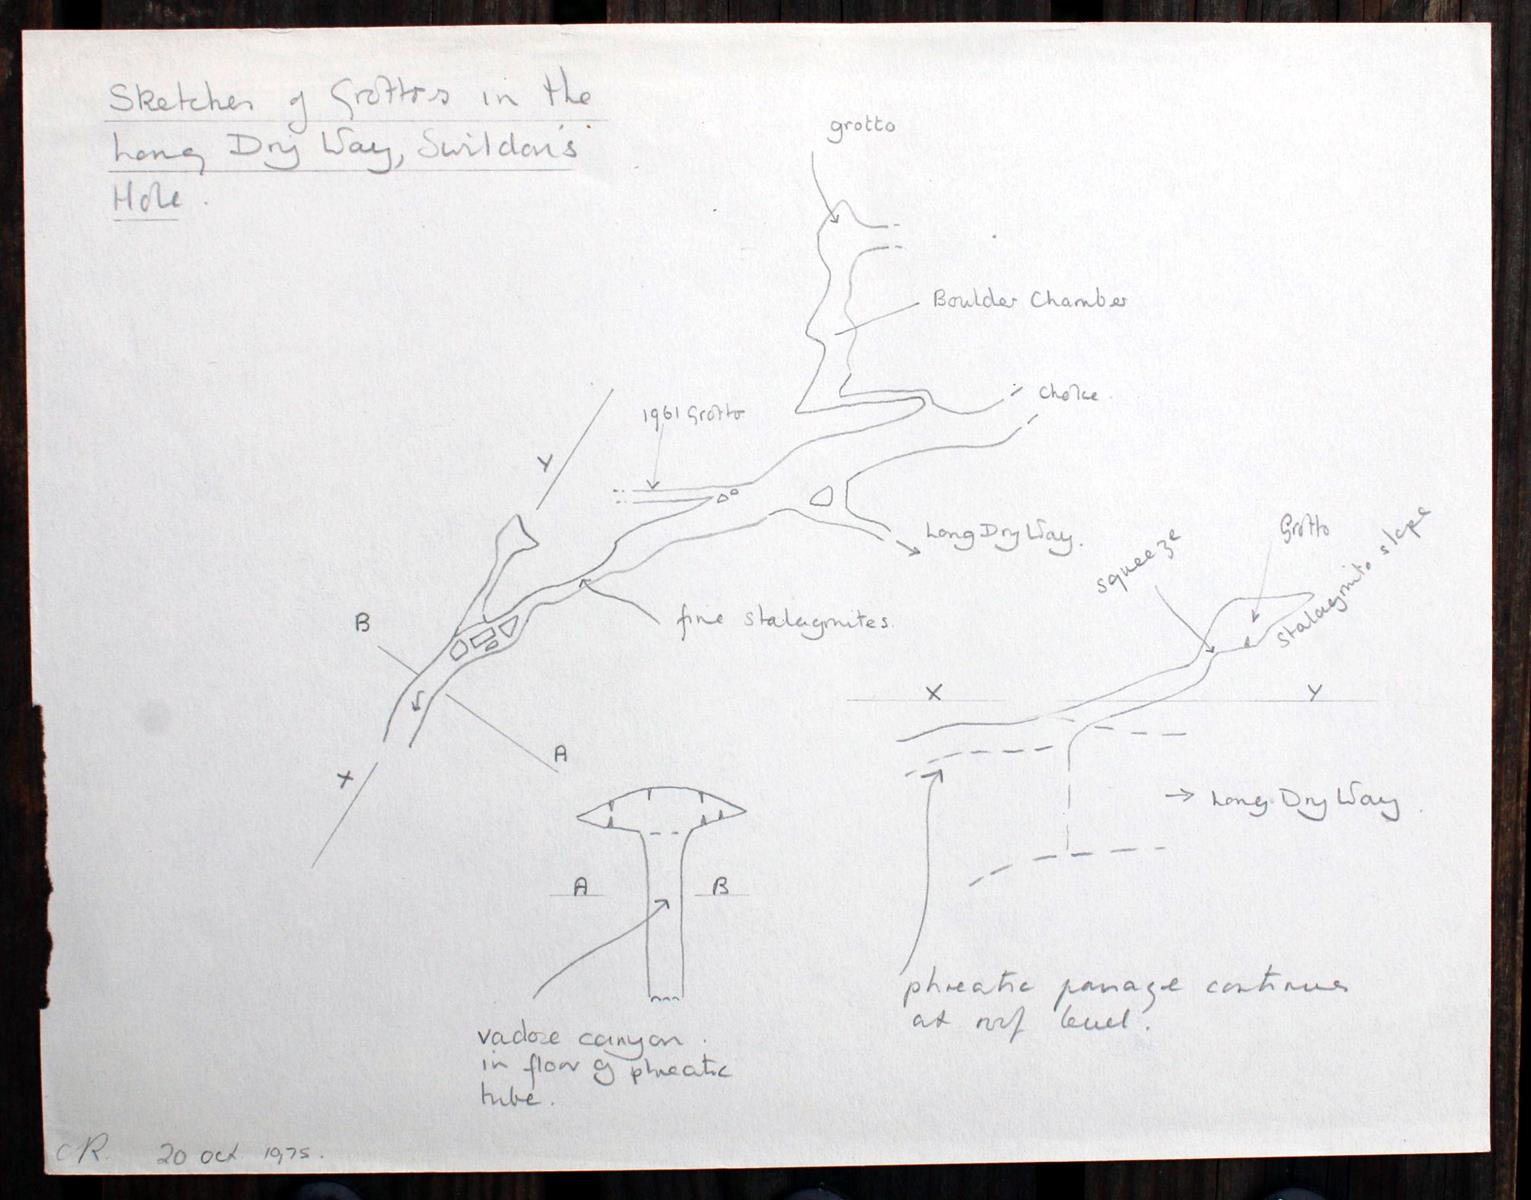 Sketches of Grottos in the
Long Dry Way, Swildon's
Hole.
grotto
Boulder Chamber
choke.
1961 Grotto
Y
Long Dry Way.
fine stalagmites.
B
A
X
squeeze
Grotto
stalagmite slope
X
Y
→ Long Dry Way.
A
B
vadose canyon.
in floor of phreatic
tube.
phreatic passage continues
at roof level.
CR. 20 Oct 1975.